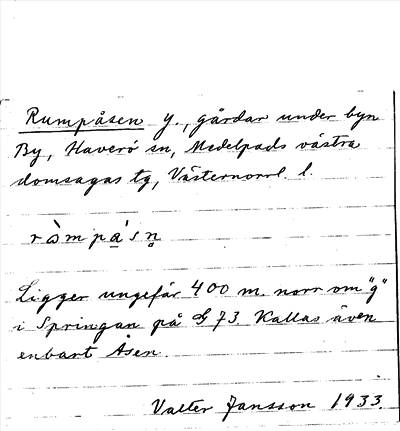 Rumpåsen g., gårdar under byn
By, Haverö sn, Medelpads västra
domsagas tg, Västernorrl. l.
Ligger ungefär 400 m. norr om "g"
i Springan på G 73. Kallas även
enbart Åsen.
Valter Jansson 1933.